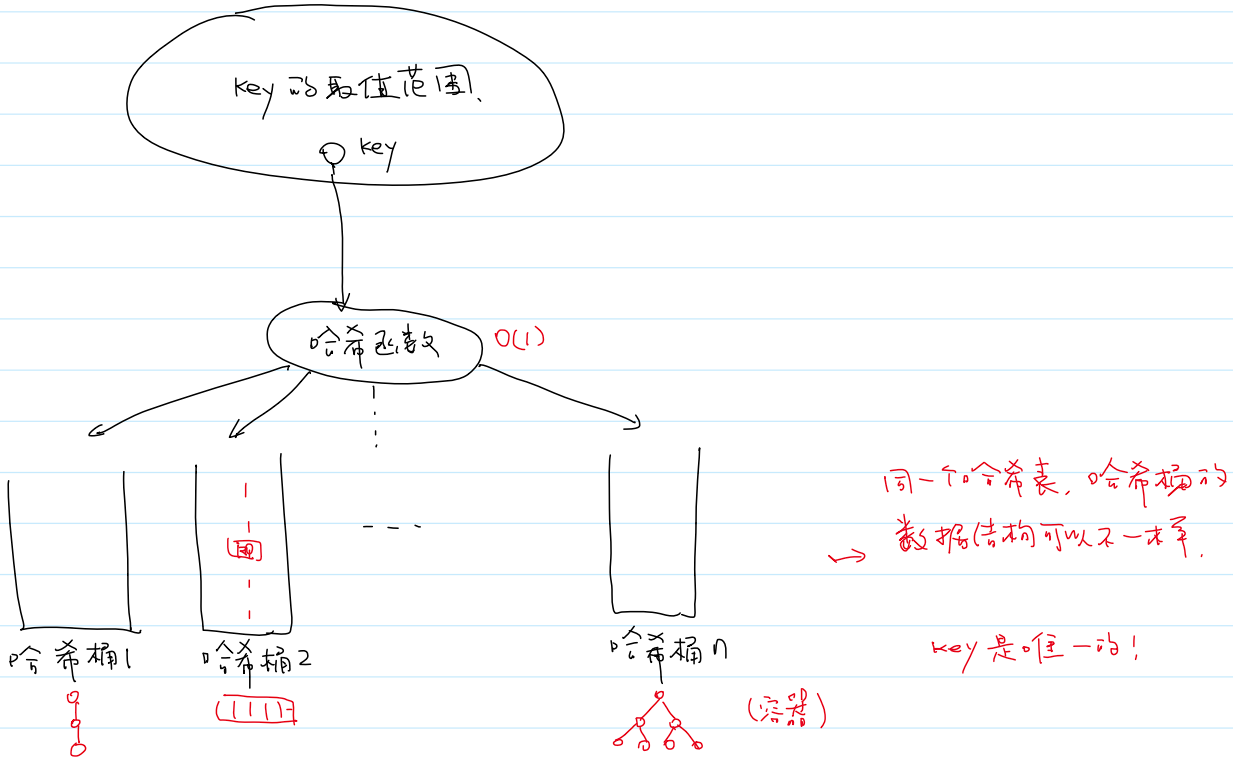 key的取值范围.
key
哈希函数
O(1)
同一个哈希表, 哈希桶的
数据结构可以不一样.
哈希桶1
哈希桶2
哈希桶n
key是唯一的!
(容器)